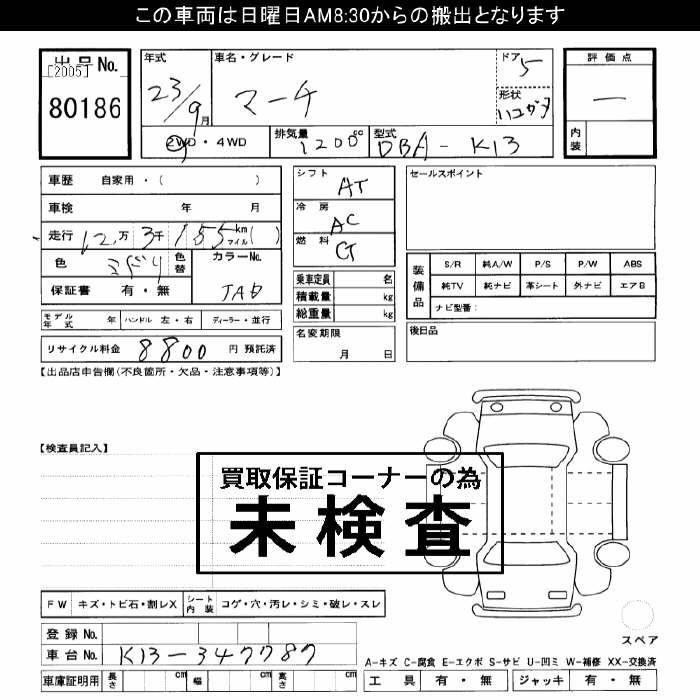 この車両は日曜日AM8:30からの搬出となります
出品No.
[2005]
80186
年式 車名・グレード ドア 5
23/9月 マーチ
形状 ハコガタ
評価点
一
内装
2WD・4WD 排気量 1200cc 型式 DBA-K13
車歴 自家用・( )
車検 年 月
走行 12万3千155km マイル( )
色 ミドリ 色替 カラーNo.
保証書 有・無 JAD
モデル年式 年 ハンドル 左・右 ディーラー・並行
リサイクル料金 8800円 預託済
シフト AT
冷房 AC
燃料 G
乗車定員 名
積載量 kg
総重量 kg
名変期限
月 日
セールスポイント
装備品
S/R 純A/W P/S P/W ABS
純TV 純ナビ 革シート 外ナビ エアB
ナビ型番:
後日品
【出品店申告欄(不良箇所・欠品・注意事項等)】
【検査員記入】
買取保証コーナーの為
未検査
FW キズ・トビ石・割レX シート内装 コゲ・穴・汚レ・シミ・破レ・スレ
登録No.
車台No. K13-347787
車庫証明用 長さ cm 幅 cm 高さ cm
スペア
A-キズ C-腐食 E-エクボ S-サビ U-凹ミ W-補修 XX-交換済
工具 有・無 ジャッキ 有・無